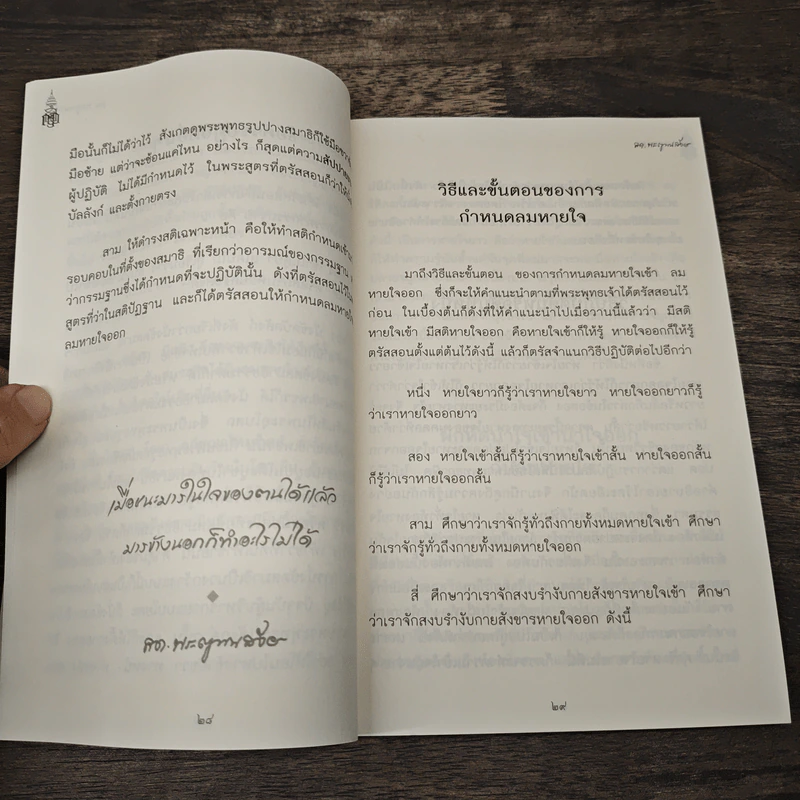 มือนั้นก็ไม่ได้ว่าไว้ สังเกตดูพระพุทธรูปปางสมาธิก็ใช้มือขวาทับ
มือซ้าย แต่ว่าจะซ้อนแค่ไหน อย่างไร ก็สุดแต่ความสัปปายะ
ผู้ปฏิบัติ ไม่ได้มีกำหนดไว้ ในพระสูตรที่ตรัสสอนก็ว่าให้
บัลลังก์ และตั้งกายตรง
สาม ให้ดำรงสติเฉพาะหน้า คือให้ทำสติกำหนด
รอบคอบในที่ตั้งของสมาธิ ที่เรียกว่าอารมณ์ของกรรมฐาน
ว่ากรรมฐานซึ่งได้กำหนดที่จะปฏิบัตินั้น ดังที่ตรัสสอนไว้ใน
สูตรที่ว่าในสติปัฏฐาน และก็ได้ตรัสสอนให้กำหนดลมหายใจ
ลมหายใจออก
เมื่อชนะมารในใจของตนได้แล้ว
มารข้างนอกก็ทำอะไรไม่ได้
๒๘
วิธีและขั้นตอนของการ
กำหนดลมหายใจ
มาถึงวิธีและขั้นตอน ของการกำหนดลมหายใจเข้า ลม
หายใจออก ซึ่งก็จะให้คำแนะนำตามที่พระพุทธเจ้าได้ตรัสสอนไว้
ก่อน ในเบื้องต้นก็ดังที่ให้คำแนะนำไปเมื่อวานนี้แล้วว่า มีสติ
หายใจเข้า มีสติหายใจออก คือหายใจเข้าก็ให้รู้ หายใจออกก็ให้รู้
ตรัสสอนตั้งแต่ต้นไว้ดังนี้ แล้วก็ตรัสจำแนกวิธีปฏิบัติต่อไปอีกว่า
หนึ่ง หายใจยาวก็รู้ว่าเราหายใจยาว หายใจออกยาวก็รู้
ว่าเราหายใจออกยาว
สอง หายใจเข้าสั้นก็รู้ว่าเราหายใจเข้าสั้น หายใจออกสั้น
ก็รู้ว่าเราหายใจออกสั้น
สาม ศึกษาว่าเราจักรู้ทั่วถึงกายทั้งหมดหายใจเข้า ศึกษา
ว่าเราจักรู้ทั่วถึงกายทั้งหมดหายใจออก
สี่ ศึกษาว่าเราจักสงบรำงับกายสังขารหายใจเข้า ศึกษา
ว่าเราจักสงบรำงับกายสังขารหายใจออก ดังนี้
๒๙